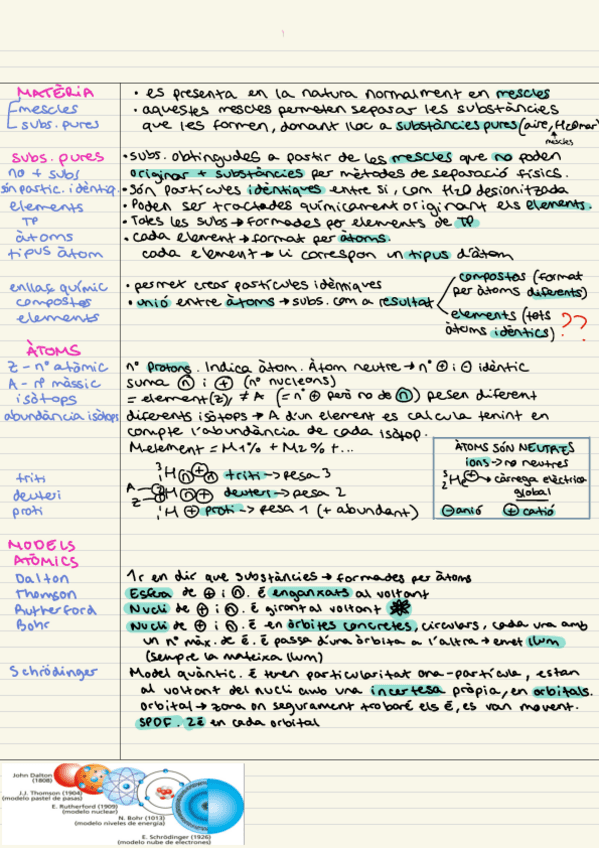 1
MATÈRIA
mescles
subs. pures
• es presenta en la natura normalment en mescles
• aquestes mescles permeten separar les substàncies
que les formen, donant lloc a substàncies pures (aire, H2O mar)
mescles
subs. pures
no + subs
són partic. idèntiq.
elements
TP
àtoms
tipus àtom
• subs. obtingudes a partir de les mescles que no poden
originar + substàncies per mètodes de separació físics.
• Són partícules idèntiques entre si, com H2O desionitzada
• Poden ser tractades químicament originant els elements.
• Totes les subs → formades per elements de TP
• cada element → format per àtoms.
cada element → li correspon un tipus d'àtom
enllaç químic
compostos
elements
• permet crear partícules idèntiques
• unió entre àtoms → subs. com a resultat
compostos (format
per àtoms diferents)
elements (tots
àtoms idèntics) ??
ÀTOMS
Z - nº atòmic
A - nº màssic
isòtops
abundància isòtops
nº protons. Indica àtom. Àtom neutre → nº ⊕ i ⊖ idèntic
suma n i + (nº nucleons)
= element (z), ≠ A (= nº ⊕ però no de n) pesen diferent
diferents isòtops → A d'un element es calcula tenint en
compte l'abundància de cada isòtop.
Melement = M1% + M2% + ...
triti
deuteri
proti
3 1 H n + n triti -> pesa 3
A
Z
2 1 H n + deuteri -> pesa 2
1 1 H + proti -> pesa 1 (+ abundant)
ÀTOMS SÓN NEUTRES
ions -> no neutres
3 2 He + → càrrega elèctrica
global
⊖ anió ⊕ catió
MODELS
ATÒMICS
Dalton
Thomson
Rutherford
Bohr
Schrödinger
1r en dir que substàncies → formades per àtoms
Esfera de ⊕ i n. ē enganxats al voltant
Nucli de ⊕ i n. ē girant al voltant
Nucli de ⊕ i n. ē en òrbites concretes, circulars, cada una amb
un nº màx. de ē. ē passa d'una òrbita a l'altra → emet llum
(sempre la mateixa llum)
Model quàntic. ē tenen particularitat ona-partícula, estan
al voltant del nucli amb una incertesa pròpia, en orbitals.
Orbital → zona on segurament trobaré els ē, es van movent.
SPDF. 2ē en cada orbital
John Dalton
(1808)
J.J. Thomson (1904)
(modelo pastel de pasas)
E. Rutherford (1909)
(modelo nuclear)
N. Bohr (1013)
(modelo niveles de energía)
E. Schrödinger (1926)
(modelo nube de electrones)